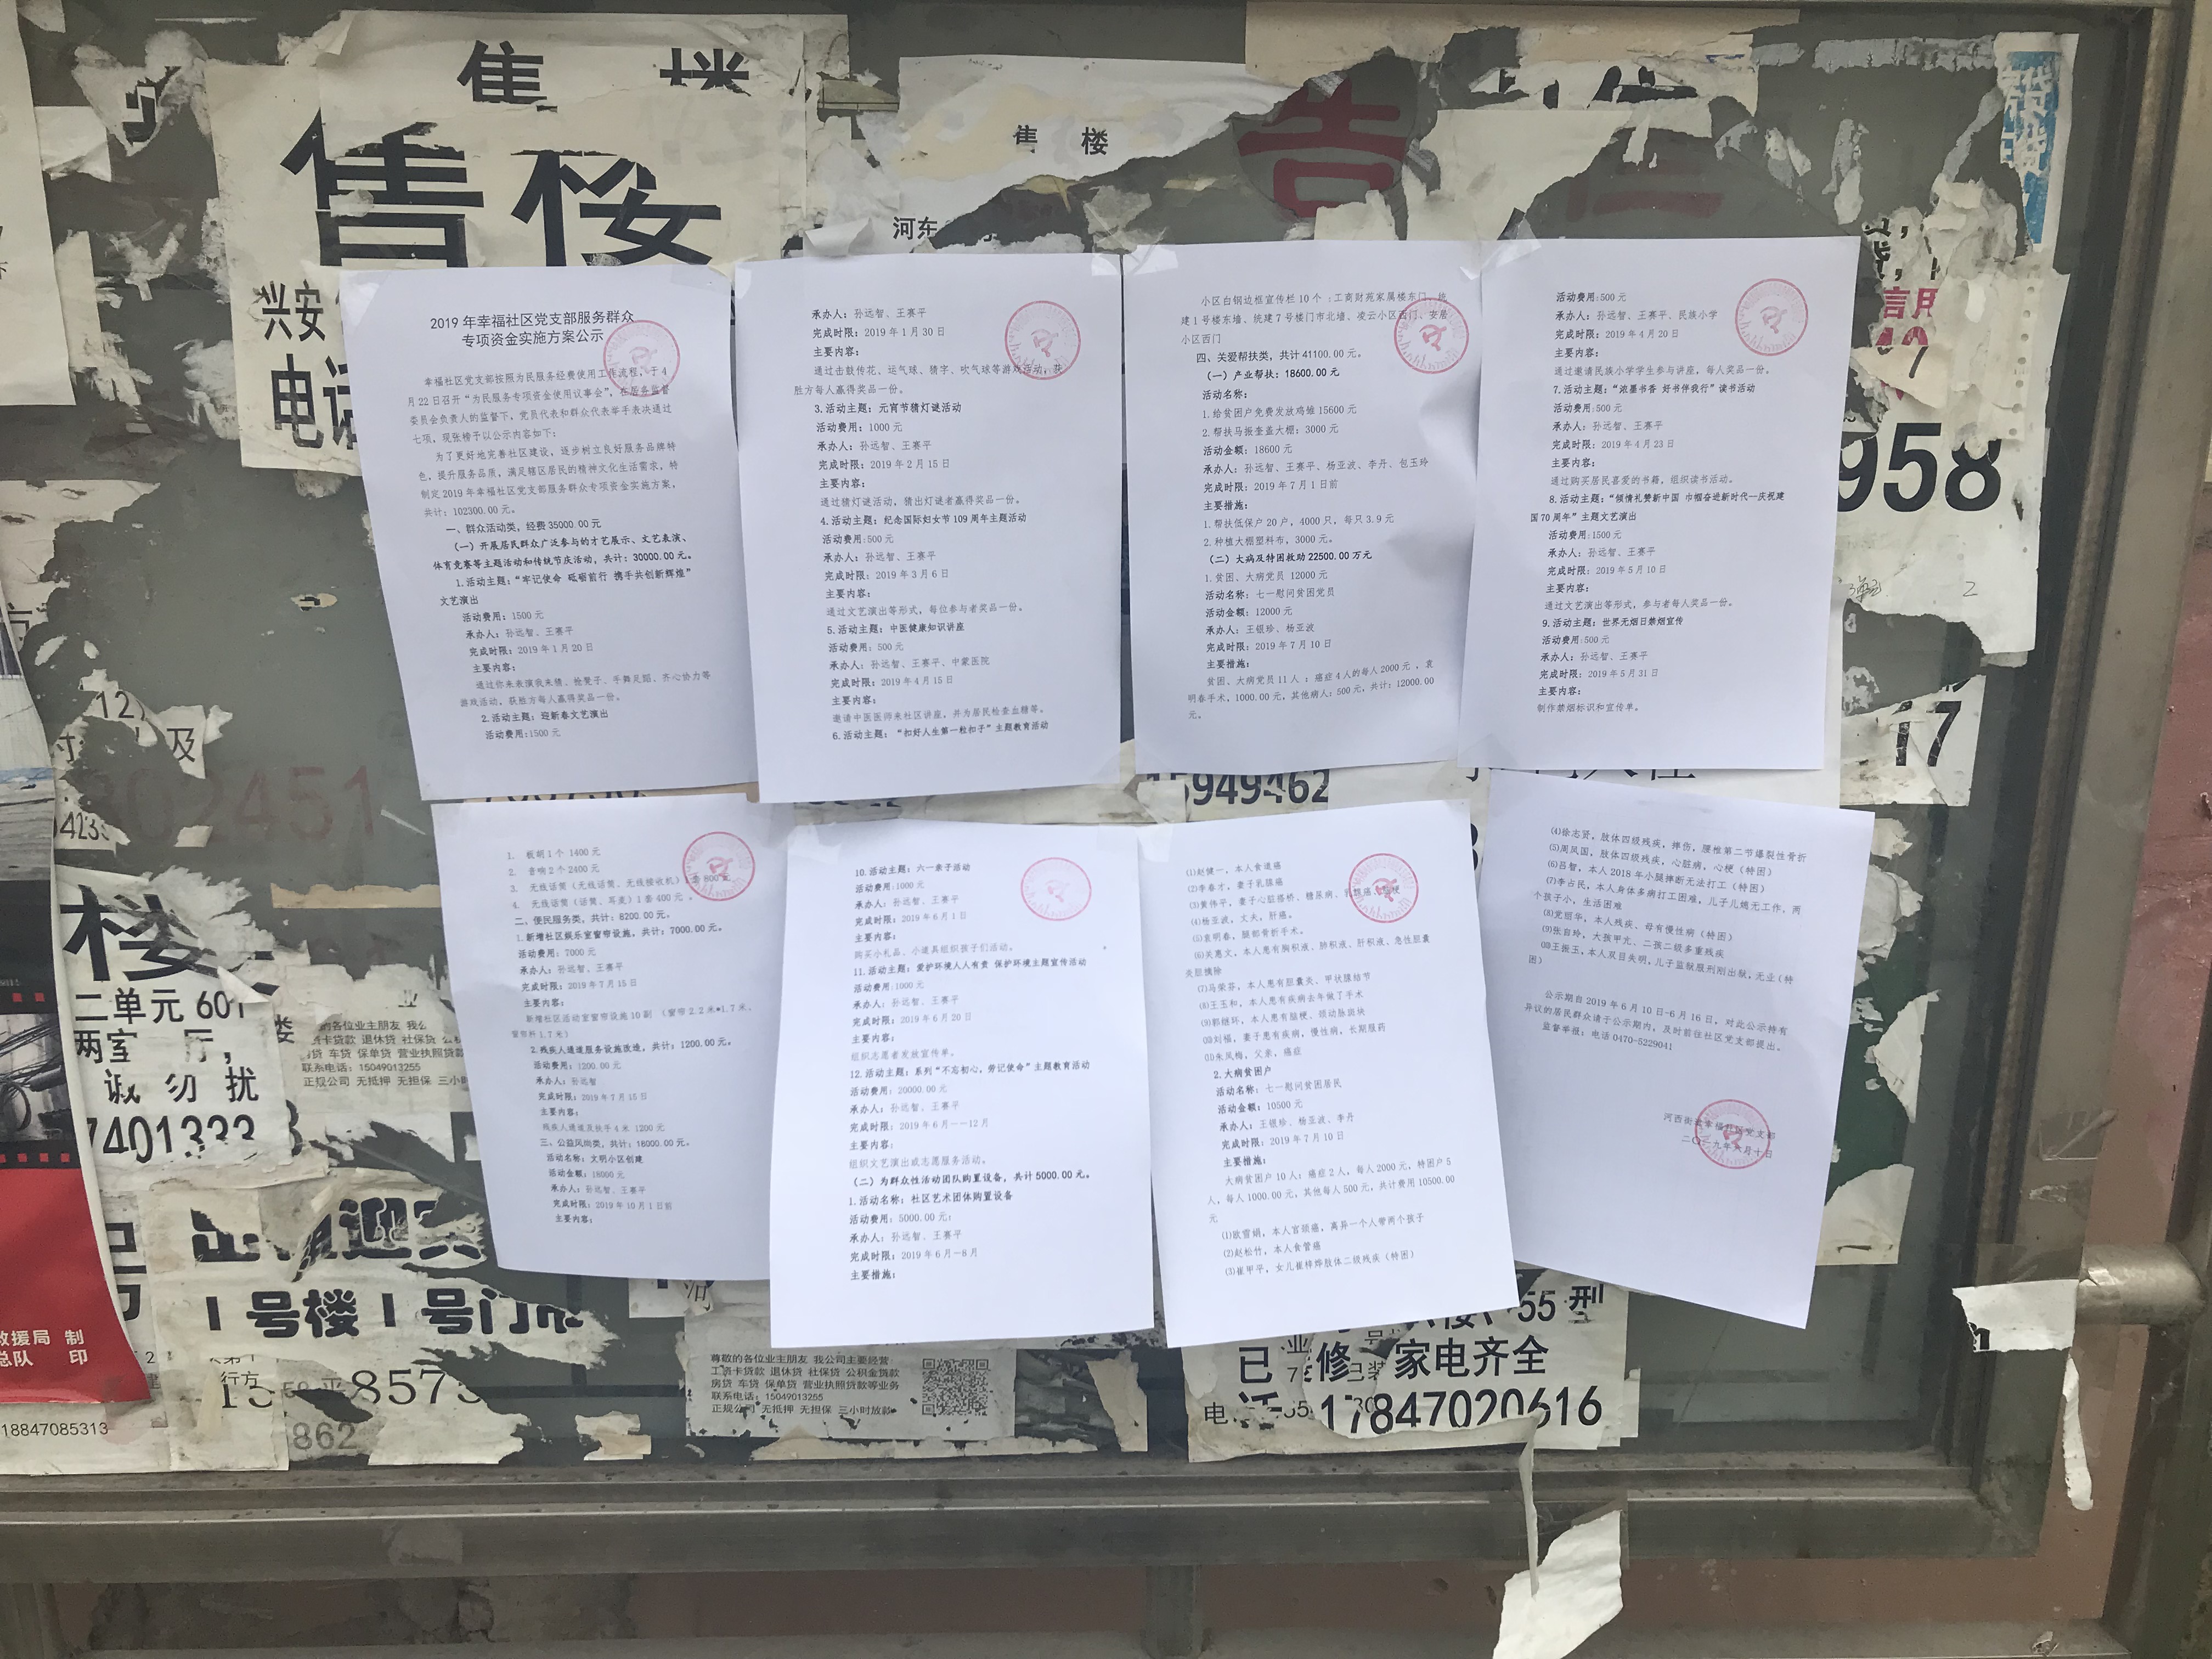 售 楼
售 楼
售 楼
兴安
电话
河东
告
958
17
2019 年幸福社区党支部服务群众
专项资金实施方案公示
幸福社区党支部按照为民服务经费使用工作流程，于 4
月 22 日召开“为民服务专项资金使用议事会”，在居务监督
委员会负责人的监督下，党员代表和群众代表举手表决通过
七项，现张榜予以公示内容如下：
为了更好地完善社区建设，逐步树立良好服务品牌特
色，提升服务品质，满足辖区居民的精神文化生活需求，特
制定 2019 年幸福社区党支部服务群众专项资金实施方案，
共计：102300.00 元。
一、群众活动类，经费 35000.00 元
（一）开展居民群众广泛参与的才艺展示、文艺表演、
体育竞赛等主题活动和传统节庆活动，共计：30000.00 元。
1.活动主题：“牢记使命 砥砺前行 携手共创新辉煌”
文艺演出
活动费用：1500 元
承办人：孙远智、王赛平
完成时限：2019 年 1 月 20 日
主要内容：
通过你来表演我来猜、抢凳子、手舞足蹈、齐心协力等
游戏活动，获胜方每人赢得奖品一份。
2.活动主题：迎新春文艺演出
活动费用:1500 元
承办人：孙远智、王赛平
完成时限：2019 年 1 月 30 日
主要内容：
通过击鼓传花、运气球、猜字、吹气球等游戏活动，获
胜方每人赢得奖品一份。
3.活动主题：元宵节猜灯谜活动
活动费用：1000 元
承办人：孙远智、王赛平
完成时限：2019 年 2 月 15 日
主要内容：
通过猜灯谜活动，猜出灯谜者赢得奖品一份。
4.活动主题：纪念国际妇女节 109 周年主题活动
活动费用:500 元
承办人：孙远智、王赛平
完成时限：2019 年 3 月 6 日
主要内容：
通过文艺演出等形式，每位参与者奖品一份。
5.活动主题：中医健康知识讲座
活动费用：500 元
承办人：孙远智、王赛平、中蒙医院
完成时限：2019 年 4 月 15 日
主要内容：
邀请中医医师来社区讲座，并为居民检查血糖等。
6.活动主题：“扣好人生第一粒扣子”主题教育活动
小区白钢边框宣传栏 10 个 ：工商财苑家属楼东门、统
建 1 号楼东墙、统建 7 号楼门市北墙、凌云小区西门、安居
小区西门
四、关爱帮扶类，共计 41100.00 元。
（一）产业帮扶：18600.00 元
活动名称：
1.给贫困户免费发放鸡雏 15600 元
2.帮扶马振奎盖大棚：3000 元
活动金额：18600 元
承办人：孙远智、王赛平、杨亚波、李丹、包玉玲
完成时限：2019 年 7 月 1 日前
主要措施：
1.帮扶低保户 20 户，4000 只，每只 3.9 元
2.种植大棚塑料布，3000 元。
（二）大病及特困救助 22500.00 万元
1.贫困、大病党员 12000 元
活动名称：七一慰问贫困党员
活动金额：12000 元
承办人：王银珍、杨亚波
完成时限：2019 年 7 月 10 日
主要措施：
贫困、大病党员 11 人 ：癌症 4 人的每人 2000 元 ，袁
明春手术，1000.00 元，其他病人：500 元，共计：12000.00
元。
活动费用:500 元
承办人：孙远智、王赛平、民族小学
完成时限：2019 年 4 月 20 日
主要内容：
通过邀请民族小学学生参与讲座，每人奖品一份。
7.活动主题：“浓墨书香 好书伴我行”读书活动
活动费用:500 元
承办人：孙远智、王赛平
完成时限：2019 年 4 月 23 日
主要内容：
通过购买居民喜爱的书籍，组织读书活动。
8.活动主题：“倾情礼赞新中国 巾帼奋进新时代—庆祝建
国 70 周年”主题文艺演出
活动费用:1500 元
承办人：孙远智、王赛平
完成时限：2019 年 5 月 10 日
主要内容：
通过文艺演出等形式，参与者每人奖品一份。
9.活动主题：世界无烟日禁烟宣传
活动费用:500 元
承办人：孙远智、王赛平
完成时限：2019 年 5 月 31 日
主要内容：
制作禁烟标识和宣传单。
1. 板胡 1 个 1400 元
2. 音响 2 个 2400 元
3. 无线话筒（无线话筒、无线接收机）1 套 800 元
4. 无线话筒（话筒、耳麦）1 套 400 元 。
二、便民服务类，共计：8200.00 元。
1.新增社区娱乐室窗帘设施，共计：7000.00 元。
活动费用：7000 元
承办人：孙远智、王赛平
完成时限：2019 年 7 月 15 日
主要内容：
新增社区活动室窗帘设施 10 副 （窗帘 2.2 米*1.7 米，
窗帘杆 1.7 米）
2.残疾人通道服务设施改造，共计：1200.00 元。
活动费用：1200.00 元
承办人：孙远智
完成时限：2019 年 7 月 15 日
主要内容：
残疾人通道及扶手 4 米 1200 元
三、公益风尚类，共计：18000.00 元。
活动名称：文明小区创建
活动金额：18000 元
承办人：孙远智、王赛平
完成时限：2019 年 10 月 1 日前
主要内容：
10.活动主题：六一亲子活动
活动费用:1000 元
承办人：孙远智、王赛平
完成时限：2019 年 6 月 1 日
主要内容：
购买小礼品、小道具组织孩子们活动。
11.活动主题：爱护环境人人有责 保护环境主题宣传活动
活动费用:1000 元
承办人：孙远智、王赛平
完成时限：2019 年 6 月 20 日
主要内容：
组织志愿者发放宣传单。
12.活动主题：系列“不忘初心，劳记使命”主题教育活动
活动费用：20000 元
承办人：孙远智、王赛平
完成时限：2019 年 6 月——12 月
主要内容：
组织文艺演出或志愿服务活动。
（二）为群众性活动团队购置设备，共计 5000.00 元。
1.活动名称：社区艺术团体购置设备
活动费用：5000.00 元；
承办人：孙远智、王赛平
完成时限：2019 年 6 月—8 月
主要措施：
⑴赵健一，本人食道癌
⑵李春才，妻子乳腺癌
⑶黄伟平，妻子心脏搭桥、糖尿病、乳腺癌、脑梗
⑷杨亚波，丈夫，肝癌。
⑸袁明春，腿部骨折手术。
⑹关惠文，本人患有胸积液、肺积液、肝积液、急性胆囊
炎胆摘除
⑺马荣芬，本人患有胆囊炎、甲状腺结节
⑻王玉和，本人患有疾病去年做了手术
⑼郭继环，本人患有脑梗、颈动脉斑块
⑽刘福，妻子患有疾病，慢性病，长期服药
⑾朱凤梅，父亲，癌症
2.大病贫困户
活动名称：七一慰问贫困居民
活动金额：10500 元
承办人：王银珍、杨亚波、李丹
完成时限：2019 年 7 月 10 日
主要措施：
大病贫困户 10 人：癌症 2 人，每人 2000 元，特困户 5
人，每人 1000.00 元，其他每人 500 元，共计费用 10500.00
元
⑴欧雪娟，本人宫颈癌，离异一个人带两个孩子
⑵赵松竹，本人食管癌
⑶崔甲平，女儿崔梓烨肢体二级残疾（特困）
⑷徐志贤，肢体四级残疾，摔伤，腰椎第二节爆裂性骨折
⑸周凤国，肢体四级残疾，心脏病，心梗（特困）
⑹吕智，本人 2018 年小腿摔断无法打工（特困）
⑺李占民，本人身体多病打工困难，儿子儿媳无工作，两
个孩子小，生活困难
⑻党丽华，本人残疾、母有慢性病（特困）
⑼张自玲，大孩甲亢、二孩二级多重残疾
⑽王振玉，本人双目失明，儿子监狱服刑刚出狱，无业（特
困）
公示期自 2019 年 6 月 10 日-6 月 16 日，对此公示持有
异议的居民群众请于公示期内，及时前往社区党支部提出。
监督举报：电话 0470-5229041
河西街道幸福社区党支部
二〇一九年六月十日
15949462
楼
二单元 601
两室 厅，
诚 勿 扰
7401333
的各位业主朋友 我公
资卡贷款 退休贷 社保贷 公积
房贷 车贷 保单贷 营业执照贷款
联系电话：15049013255
正规公司 无抵押 无担保 三小时
1 号楼 1 号门市
8573
862
救援局 制
总队 印
18847085313
尊敬的各位业主朋友 我公司主要经营
工资卡贷款 退休贷 社保贷 公积金贷款
房贷 车贷 保单贷 营业执照贷款等业务
联系电话：15049013255
正规公司 无抵押 无担保 三小时放款
55 型
已 修 家电齐全
17847020616